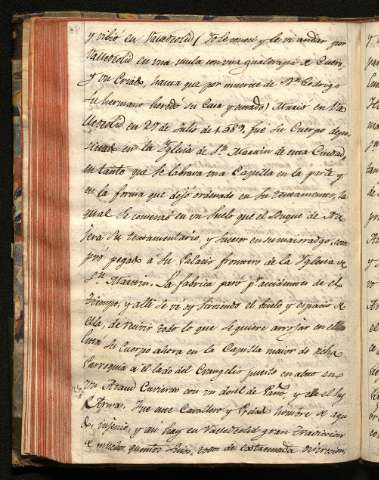 y vibió en Valladolid / Yo le conocí y le vi andar por
Valladolid en una mula con una gualdrapa de Cuero,
y un Criado, hasta que por muerte de Dn. Rodrigo
su hermano heredó su Casa y estado / Murió en Va
lladolid en 27 de Julio de 1589, fue su Cuerpo depo
sitado en la Iglesia de Sn. Martin de esta Ciudad,
en tanto que se labraba una Capilla en la parte y
en la forma que dejó ordenado en su testamento, la
qual se comenzó en un suelo que el Duque de
su testamentario, y
pegado a su Palacio frontero de la Iglesia
Sn. Martin. La fabrica paró por accidentes de el
tiempo, y alli se ve oy sirviendo el suelo y espacio de
ella, de recivir todo lo que se quiere arrojar en ella
su Cuerpo ahora en la Capilla mayor de dicha
Parroquia a el lado del Evangelio puesto en alto en
un Ataud Cuvierto con un dosel de Paño, y
Armas. Fue este Cavallero y hombre de agu
do ingenio, y assi hay en Valladolid gran tradicion
de muchos quentos suyos, como de estremada discrecion